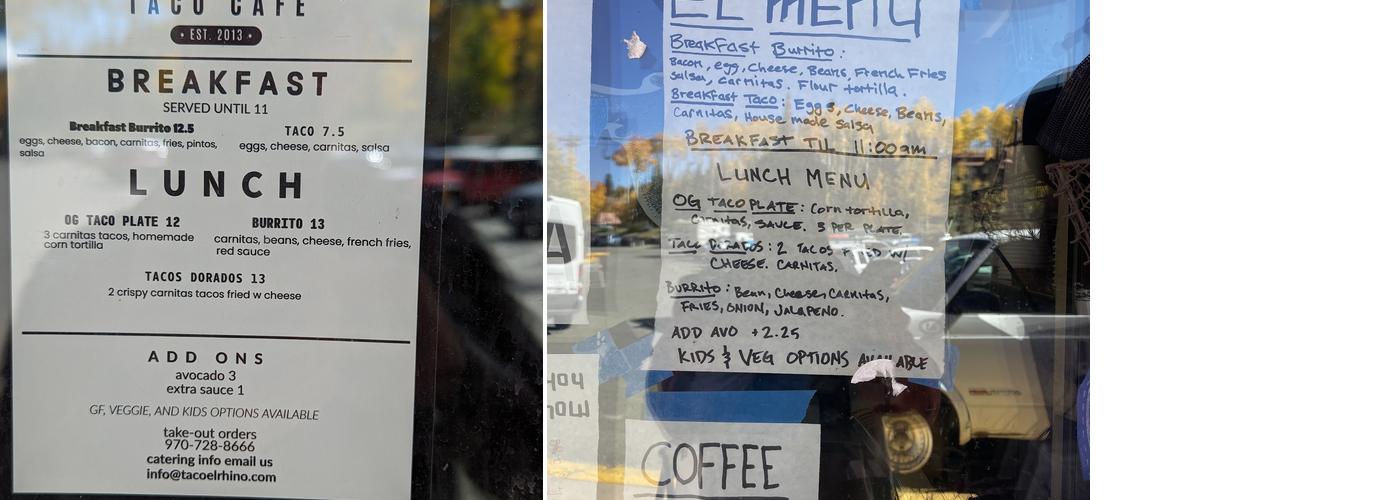 TACO CAFE
• EST. 2013 •
BREAKFAST
SERVED UNTIL 11
Breakfast Burrito 12.5
eggs, cheese, bacon, carnitas, fries, pintos,
salsa
TACO 7.5
eggs, cheese, carnitas, salsa
LUNCH
OG TACO PLATE 12
3 carnitas tacos, homemade
corn tortilla
BURRITO 13
carnitas, beans, cheese, french fries,
red sauce
TACOS DORADOS 13
2 crispy carnitas tacos fried w cheese
ADD ONS
avocado 3
extra sauce 1
GF, VEGGIE, AND KIDS OPTIONS AVAILABLE
take-out orders
970-728-8666
catering info email us
info@tacoelrhino.com
EL MENU
Breakfast Burrito:
Bacon, egg, Cheese, Beans, French Fries
Salsa, Carnitas. Flour tortilla.
Breakfast Taco: Eggs, Cheese, Beans,
Carnitas, House made Salsa
BREAKFAST TIL 11:00am
LUNCH MENU
OG TACO PLATE: Corn tortilla,
Carnitas, SAUCE. 3 PER PLATE.
TACO DORADOS: 2 TACOS FRIED W/
CHEESE. CARNITAS.
BURRITO: Bean, Cheese, CARNITAS,
FRIES, ONION, JALAPENO.
ADD AVO +2.25
KIDS & VEG OPTIONS AVAILABLE
COFFEE
A